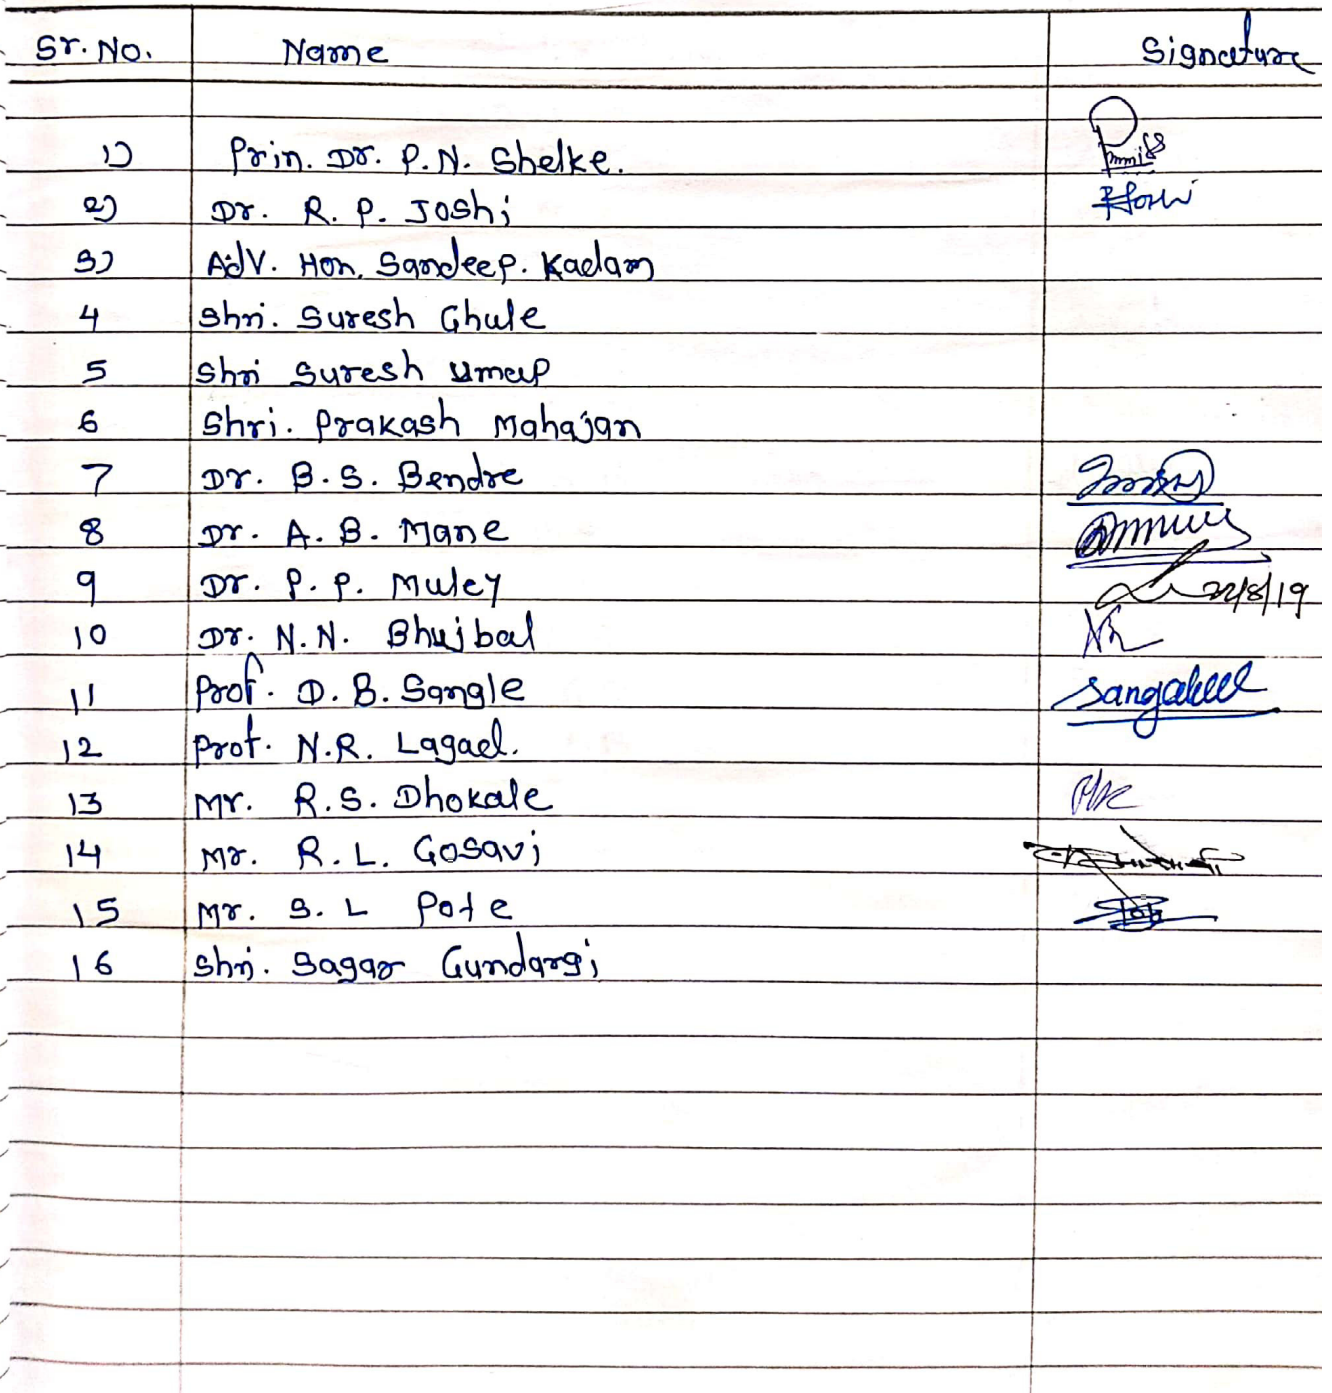 Sr. No. Name Signature
1) Prin. Dr. P. N. Shelke.
2) Dr. R. P. Joshi
3) Adv. Hon. Sandeep. Kadam
4 Shri. Suresh Ghule
5 Shri Suresh Umap
6 Shri. Prakash Mahajan
7 Dr. B. S. Bendre
8 Dr. A. B. Mane
9 Dr. P. P. Muley 22/8/19
10 Dr. N. N. Bhujbal
11 Prof. D. B. Sangle
12 Prof. N.R. Lagad.
13 Mr. R.S. Dhokale
14 Mr. R. L. Gosavi
15 Mr. S. L Pote
16 Shri. Sagar Gundargi